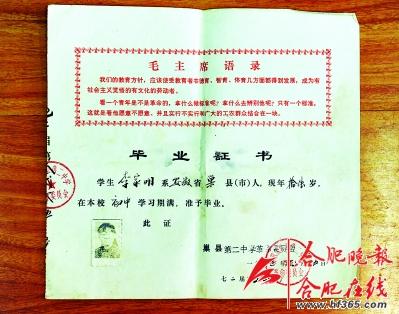 毛主席语录
我们的教育方针，应该使受教育者在德育、智育、体育几方面都得到发展，成为有
社会主义觉悟的有文化的劳动者。
看一个青年是不是革命的，拿什么做标准呢？拿什么去辨别他呢？只有一个标准，
这就是看他愿意不愿意、并且实行不实行和广大的工农群众结合在一块。
毕业证书
学生 李家明 系 安徽 省 巢 县(市)人，现年 拾陆 岁，
在本校 初中 学习期满，准予毕业。
此证
巢县第二中学革
一
七二届
合肥晚报
合肥在线
www.hf365.com